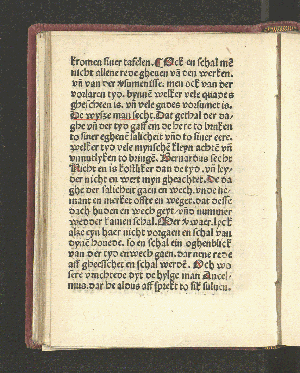 kromen siner tafelen. ¶ Ock en schal mē
nicht allene rede gheuen vn̄ den werken.
vn̄ van der vsumenisse. men ock van der
vorlaren tyd. bynnē welker vele quades
gheschten is. vn̄ vele gudes vorsumet is.
De wyse man secht. Dat gethal der da-
ghe vn̄ der tyd gaff em de here to bruken
to siner eghenē salicheit vn̄ to siner eere.
welker tyd vele mynschē kleyn achtē vn̄
vnnutlyken to bringē. Bernardus secht
Nicht en is kostliker dan de tyd. vn̄ ley-
der nicht en wert myn gheachtet. De da-
ghe der salicheit gaen en wech. vnde ne-
mant en merket offte en weget. dat desse
dach huden en wech geyt. vn̄ nummer
wedder kamen schal. Ber waer. lyck
alze eyn haer nicht vorgaen en schal van
dynē houede. so en schal ein oghenblick
van der tyd enwech gaen. dar nene rede
aff gheesschet en schal werdē. Och wo
sere vruchtede dyt de hylge man Ancel-
mus. dar he aldus aff sprekt to sik suluen.